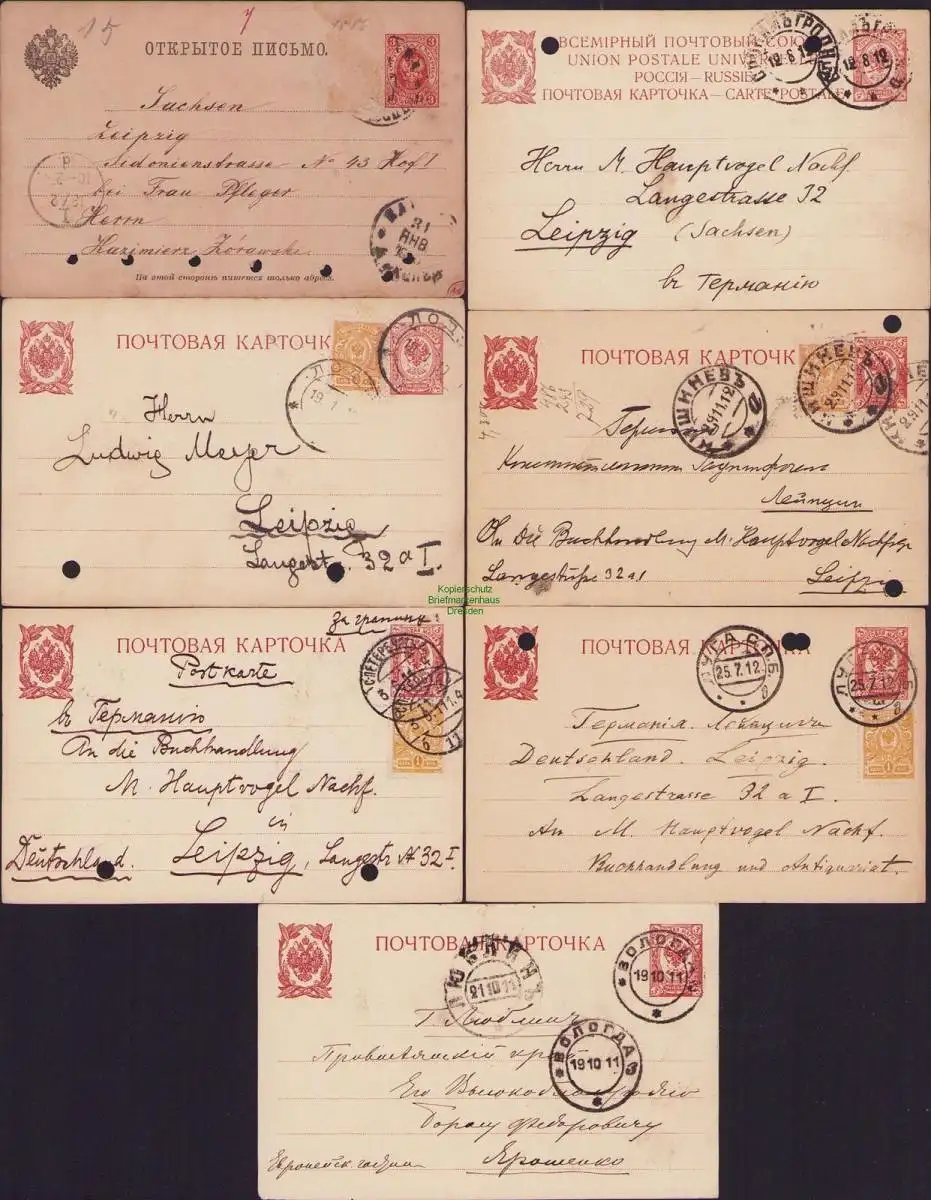 15
ОТКРЫТОЕ ПИСЬМО.
Sachsen
Leipzig
Sidonienstrasse No 43 Hof I
bei Frau Pfleger
Herrn
Kazimierz Żórawski
На этой сторонѣ пишется только адресъ.
21
ЯНВ
ВСЕМІРНЫЙ ПОЧТОВЫЙ СОЮЗЪ
UNION POSTALE UNIVERSELLE
РОССІЯ – RUSSIE
ПОЧТОВАЯ КАРТОЧКА – CARTE POSTALE
12 6 12
Herrn M. Hauptvogel Nachf.
Langestrasse 32
Leipzig (Sachsen)
въ Германію
ПОЧТОВАЯ КАРТОЧКА
Herrn
Ludwig Meyer
Leipzig
Langestr. 32 a I.
ПОЧТОВАЯ КАРТОЧКА
КИШИНЕВЪ
29.11.12
Лейпциг
An Die Buchhandlung M. Hauptvogel Nachf.
Langestraße 32 a I
Leipzig
Kopierschutz
Briefmarkenhaus
Dresden
за границу
ПОЧТОВАЯ КАРТОЧКА
Postkarte
въ Германію
An die Buchhandlung
M. Hauptvogel Nachf.
in
Deutschland. Leipzig, Langestr № 32 I
ПОЧТОВАЯ КАРТОЧКА
ЛУГА СПБ.
25.7.12
Германія. Лейпциг
Deutschland. Leipzig.
Langestrasse 32 a I.
An M. Hauptvogel Nachf.
Buchhandlung und Antiquariat.
ПОЧТОВАЯ КАРТОЧКА
ЛЮБЛИНЪ
21 10 11
ВОЛОГДА
19 10 11
Г. Люблинъ
Привислянскій край
Его Высокоблагородію
Борису Федоровичу
Ярошенко
ВОЛОГДА
19 10 11